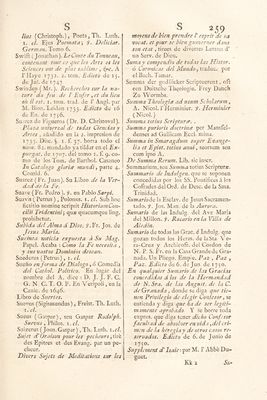 S
S
259
lius (Christoph.), Poeta, Th. Luth.
1. cl. Ejus Poemata; & Deliciar.
German. Tomo 6.
Swift: (Jonathan), Le Conte du Tonneau,
contenant tout ce que les Arts et les
Sciences ont de plus sublime, &c. A
l'Haye 1732. 2. tom. Edicto de 13.
de Jul. de 1757
Swinden (Mr.) Recherches sur la na-
ture du feu de l'Enfer, et du lieu
où il est. 2. tom. trad. de l'Angl. par
M. Bion. Leiden 1733. Edicto de 16
de En. de 1756.
Suarez de Figueroa (Dr. D. Christoval).
Plaza universal de todas Ciencias y
Artes, añadido en la 2. impresion de
1733. Disc. 3. §. f. 57. hasta todo el
num. 82. mandado quitar en el Ex-
purgat. de 1707. del tomo 1. f. 9. co-
mo de los Tom. de Barthol. Casaneo
In Catalogo gloriæ mundi, parte 4.
Consid. 6.
Suarez (Fr. José) Su Libro de la Ver-
dad de la Fe.
Suave (Fr. Pedro). v. en Pablo Sarpi.
Suavis (Petrus), Polanus. 1. cl. Sub hoc
fictitio nomine scripsit Historiam Con-
cilii Tridentini; quæ quacumque ling.
prohibetur.
Subida del Alma á Dios, 2. Fr. Jos. de
Jesus Maria.
Sucinta noticia respuesta à Su Mag.
Papel. Acaba: Como la Fe necesita,
y me manda Dominus meus.
Suederus (Petrus) 1. cl.
Sueño en forma de Dialogo, o Comedia
del Cathol. Politico. En lugar del
nombre del A. dice: D. J. F. C.
G. N. C. T. O. F. En Veripoli, en la
Canic. de 1646.
Libro de Suertes.
Suevus (Sigismundus), Freist. Th. Luth.
1. cl.
Suius (Gaspar), seu Gaspar Rodolph.
Suevus, Philos. 1. cl.
Suicerus (Joan. Gaspar), Th. Luth. 1. cl.
Sujet d'Oraison pour les pecheurs, tiré
des Epitres et des Evang. par un pe-
cheur.
Divers Sujets de Meditations sur les
moyens de bien prendre l'esprit de sa
vocat. et pour se bien gouverner dans
son etat, tirées de diverses Lettres d'
un Serv. de Dieu.
Suma y compendio de todas las Histor.
ó Coronicas del Mundo, traduc. por
el Bach. Tamar.
Summa der godlicker Scriptuerent, oft
een Duitsche Theologie. Frey Dutch
die Vormbs.
Summa Theologia ad usum Scholarum,
A. Nicol. l'Herminier. v. Herminier
(Nicol.)
Summa totius Scripturæ.
Summa puerilis doctrinæ per Mansfel-
denses ad Gallicam Eccl. missa.
Summa in Smaragdum super Evange-
lia et Epist. totius anni, nostrum seu
cum typo A.
De Summa Rerum. Lib. sic incipit.
Summarium, seu Summa totius Script.
Sumario de Indulgenc. que se suponen
concedidas por los SS. Pontifices á los
Cofrades del Ord. de Desc. de la Sma.
Trinidad.
Sumario de la Esclav. de Jesus Sacramen-
tado. v. Jos. Mar. de Aurora.
Sumario de las Indulg. del Ave María
del Millon. f. Rosario en la Villa de
Alcalá.
Sumario de todas las Grac. é Indulg. que
gozan todos los Cofr. de la Sta. V de-
ra-Cruz y Archicofr. del Coleccion de
JX. S. Fr. en la Casa Grande de Gra-
nada. Un Pliego. Empie. Paz, Paz, a
Paz. Edicto de 6. de Jun. de 1750.
En qualquier Sumario de las Gracias
concedidas á los de la Hermandad
de N. Sra. de las Angust. de la C.
de Granada, donde se diga que tie-
nen Privilegio de elegir Confesor, se
entienda y diga que ha de ser legiti-
mamente aprobado. Y se borra toda
expres. que diga tener dicho Confesor
facultad de absolver en vida, del cri-
men de la heregia y de otros casos re-
servados. Edicto de 6. de Junio de
1750.
Supplement d'Isaie: par M. l'Abbé Du-
guet.
Kk 2
Su-